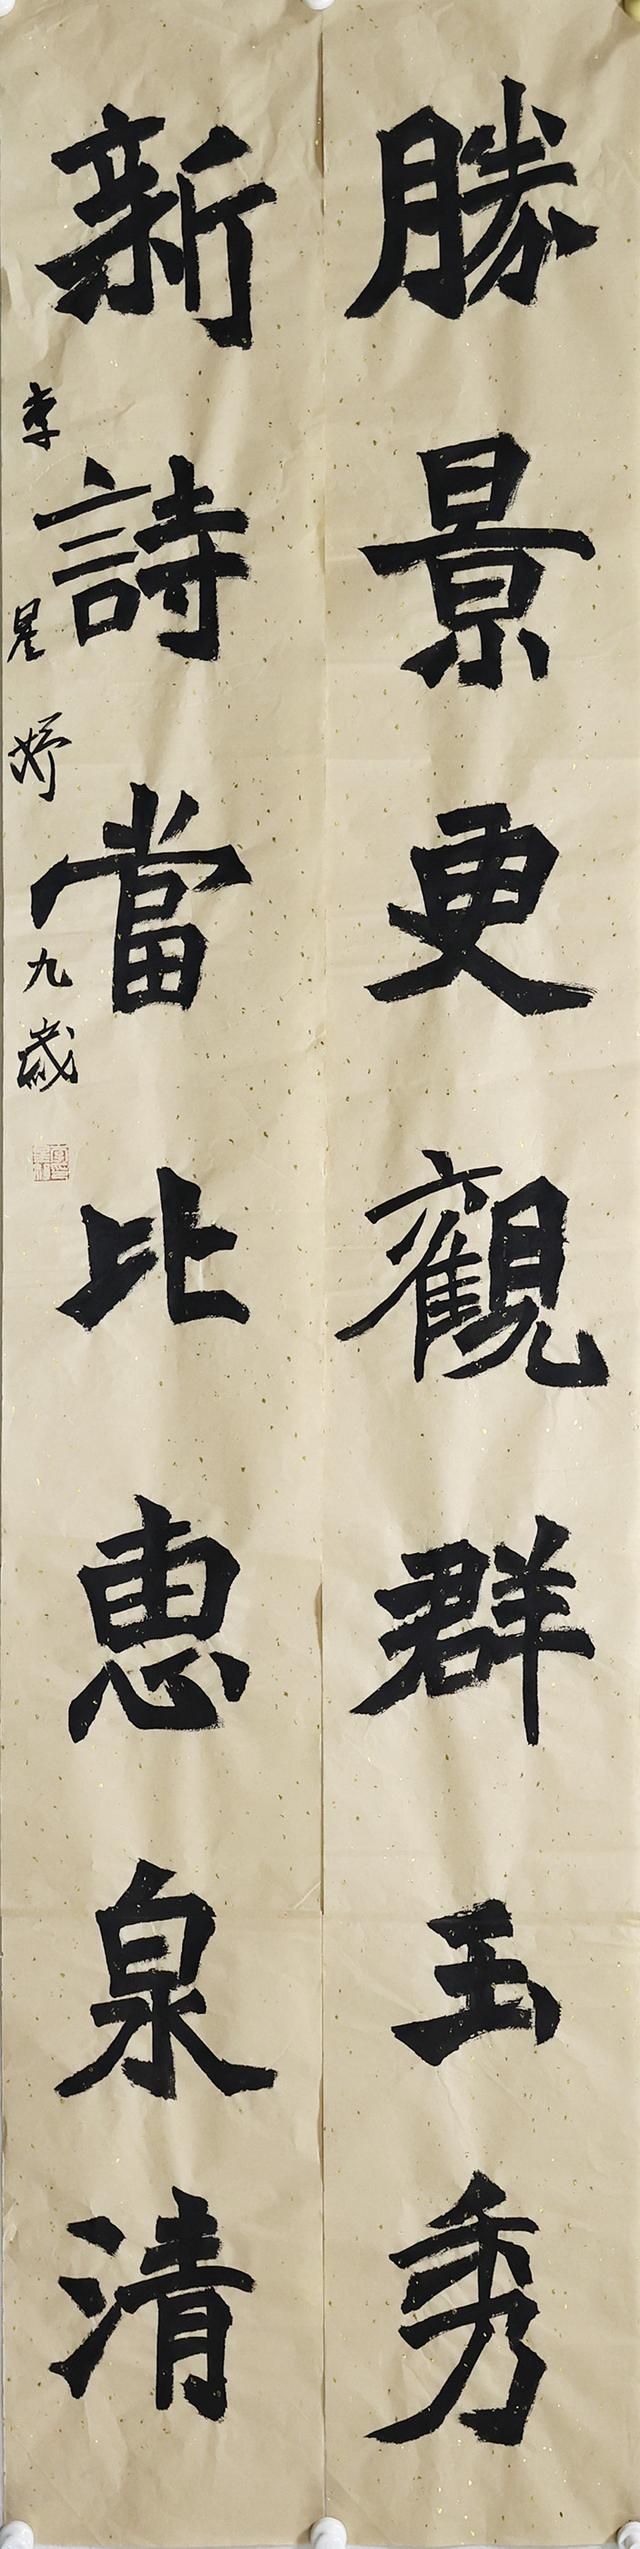 勝景更觀群玉秀
新詩當比惠泉清
李星妤九歲